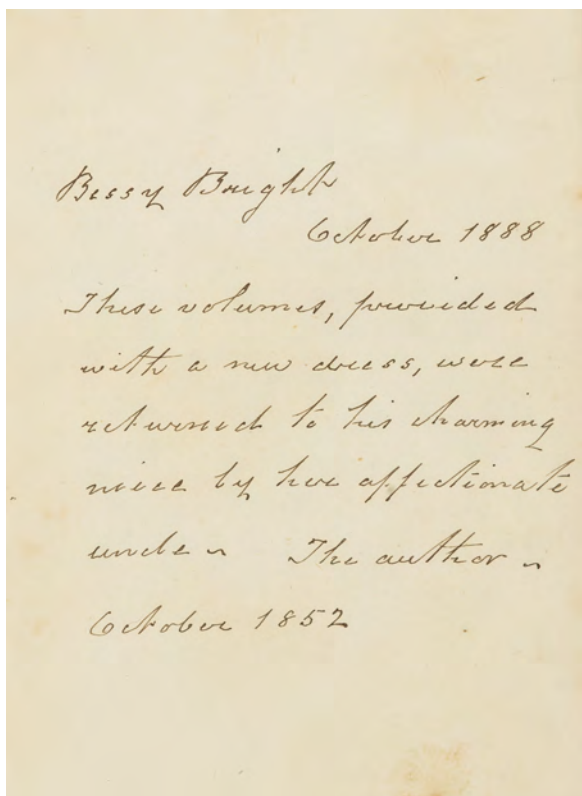 Bessy Bright
October 1888
These volumes, provided
with a new dress, were
returned to his charming
niece by her affectionate
uncle ~ The author ~
October 1852